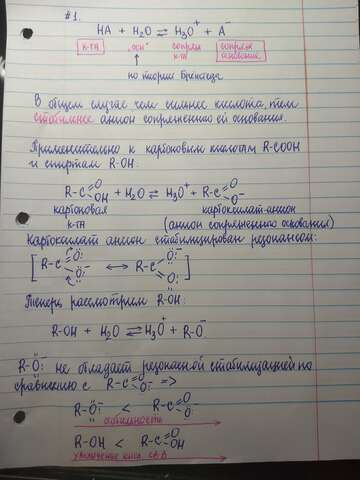 #1.
HA + H₂O ⇌ H₃O⁺ + A⁻
к-та „осн" сопряж к-та сопряж основание
по теории Бренстеда
В общем случае чем сильнее кислота, тем
стабильнее анион сопряженного ей основания.
Применительно к карбоновым кислотам R-COOH
и спиртам R-OH:
R-C(=O)OH + H₂O ⇌ H₃O⁺ + R-C(=O)O⁻
карбоновая карбоксилат-анион
к-та (анион сопряженного основания)
Карбоксилат анион стабилизирован резонансом:
[R-C(=O)O⁻ ↔ R-C(O⁻)=O]
Теперь рассмотрим R-OH:
R-OH + H₂O ⇌ H₃O⁺ + R-O⁻
R-O⁻ не обладает резонансной стабилизацией по
сравнению с R-C(=O)O⁻ =>
R-O⁻ < R-C(=O)O⁻
стабильность
R-OH < R-C(=O)OH
увеличение кисл. св-в